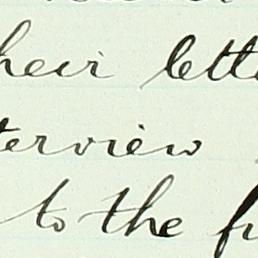 heir lette
terview
to the fu